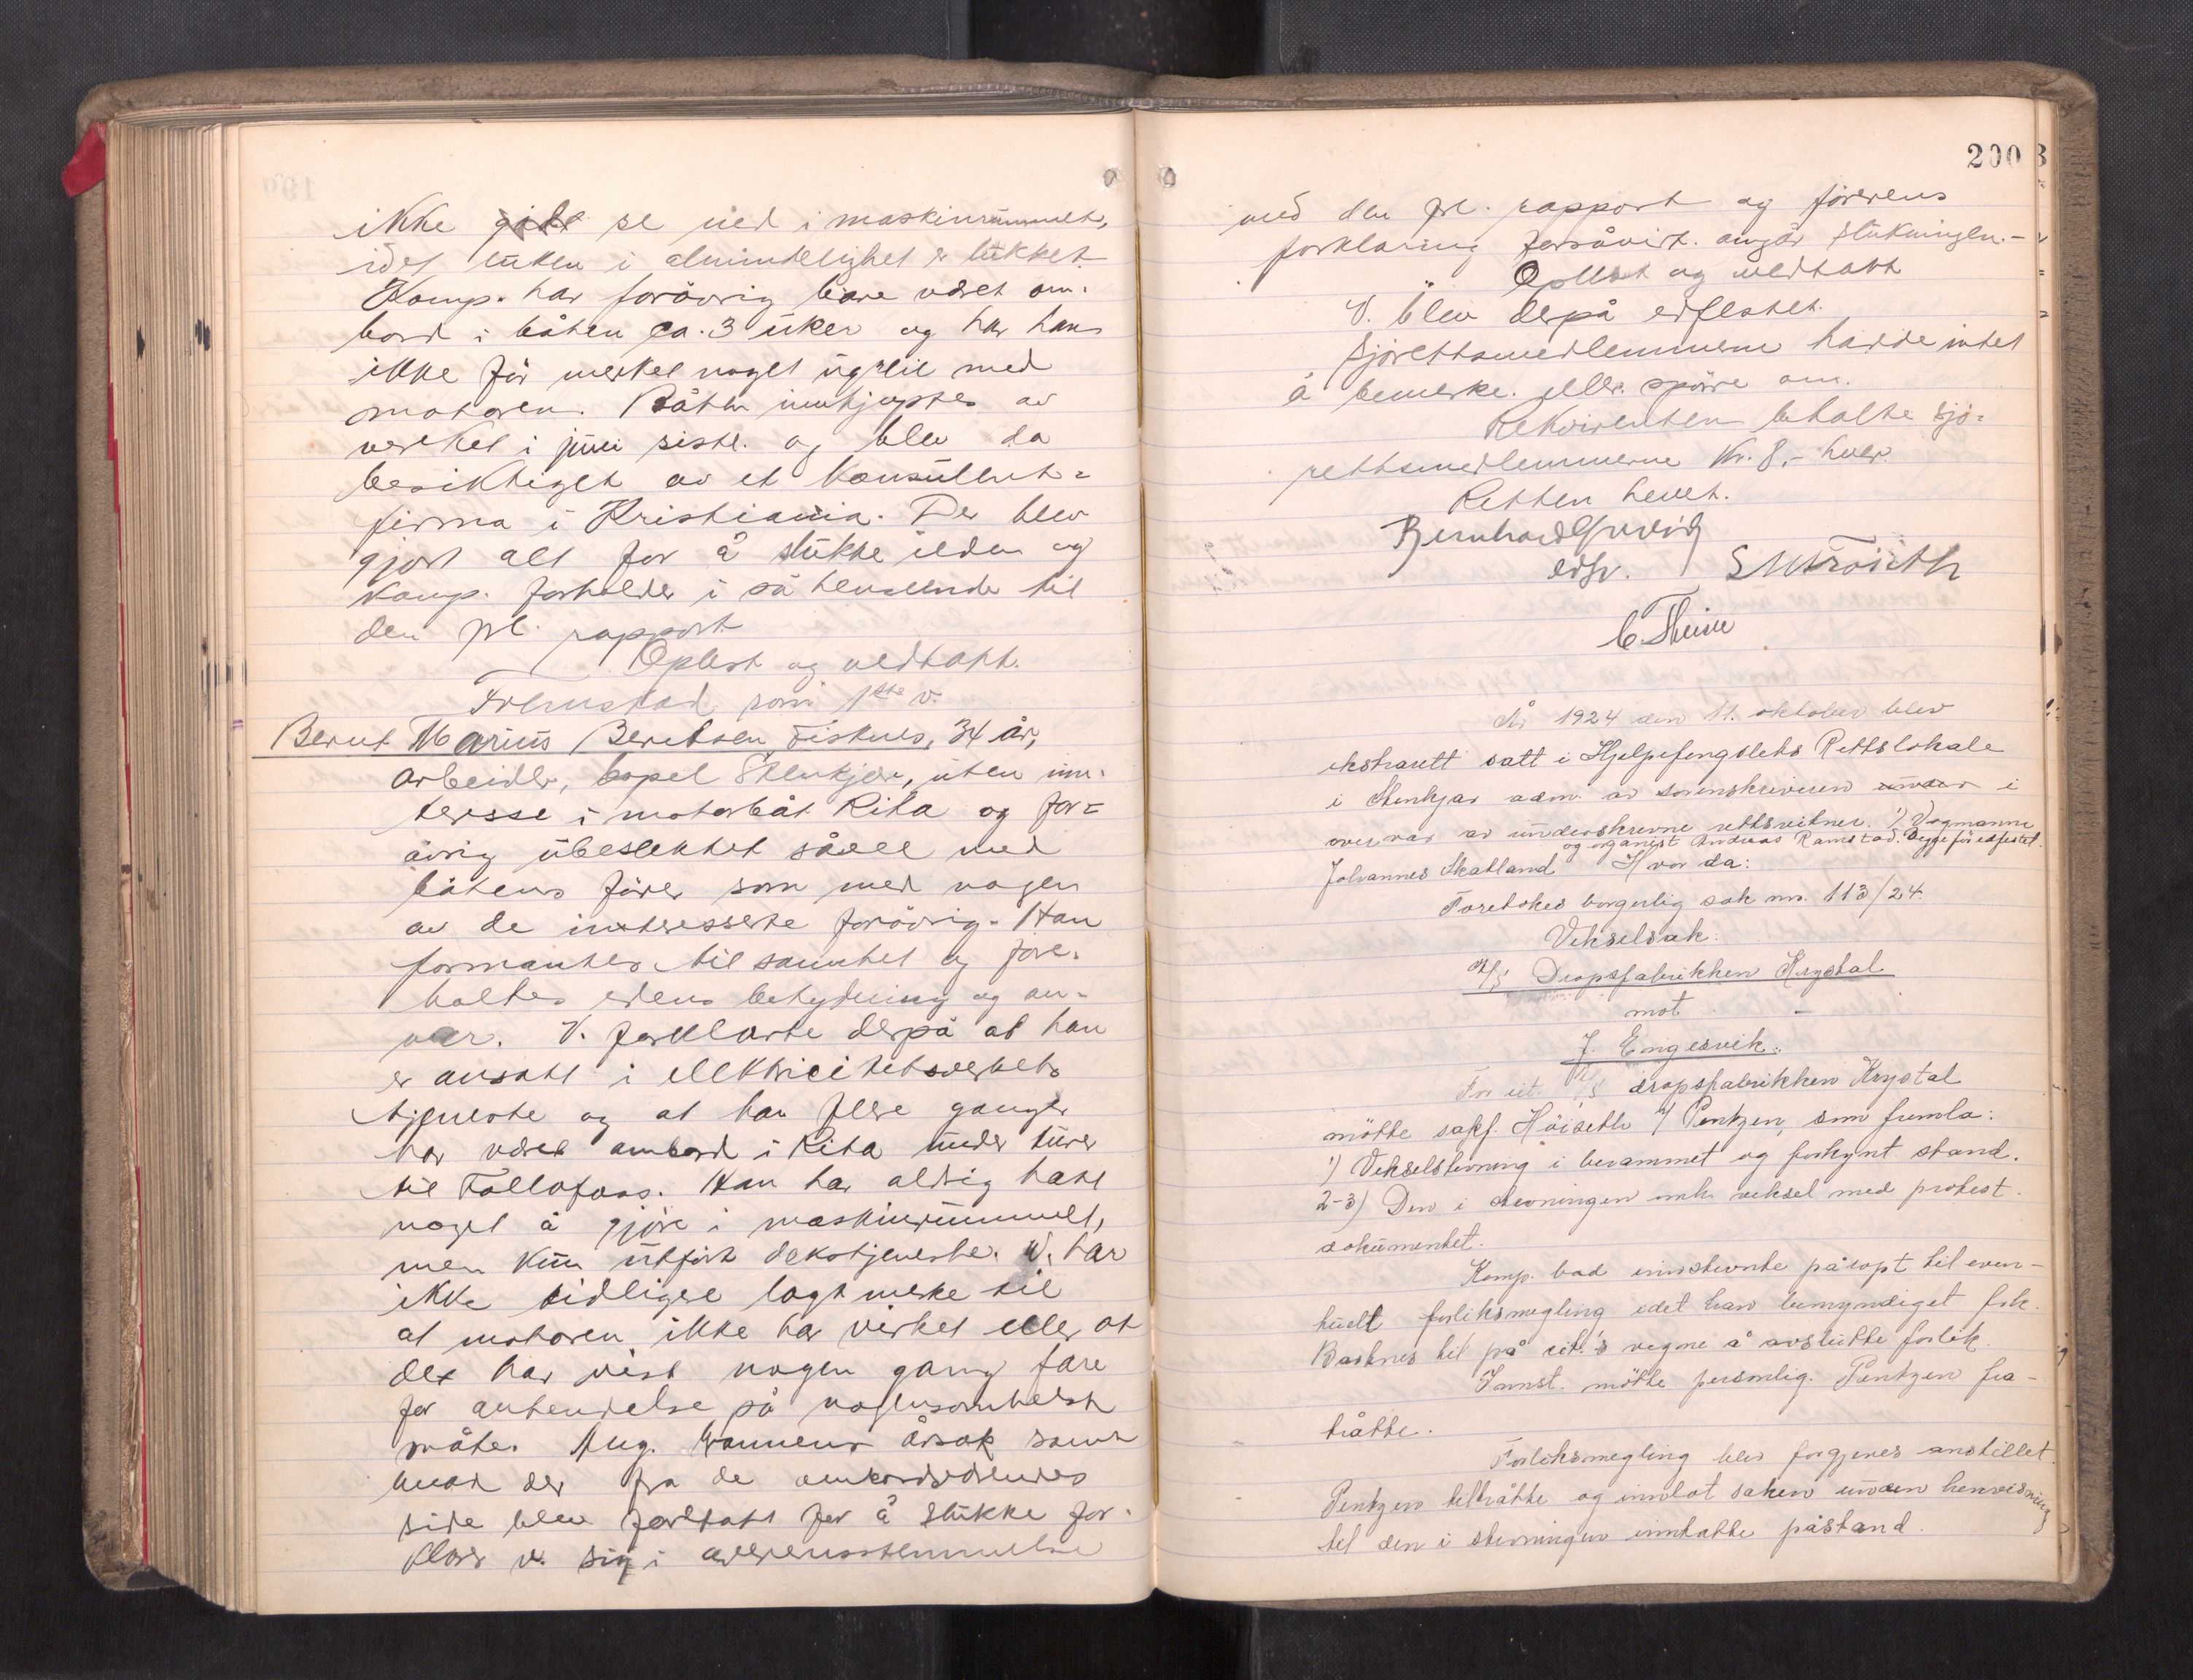 ikke gidt se ned i maskinrummet,
idet luken i almindelighet er lukket.
Komp. har forövrig bare været om-
bord i båten ca. 3 uker og har han
ikke för merket noget ugreit med
motoren. Båten innkjøptes av
verket i juni sistl. og blev da
besiktiget av et konsulent-
firma i Kristiania. Der blev
gjort alt for å slukke ilden og
Komp. forholder i så henseende til
den prl. rapport.
Oplest og vedtatt.
Fremstod som 1ste v.
Bernt Marius Berntsen Fisknes, 34 år,
arbeider, bopel Stenkjær, uten inn-
teresse i motorbåt Rita og for-
övrig ubeslektet såvel med
båtens förer som med nogen
av de interesserte forövrig. Han
formantes til sannhet og fore-
holdtes edens betydning og an-
svar. V. forklarte derpå at han
er ansatt i elektricitetsverkets
tjeneste og at han flere ganger
har været ombord i Rita under turer
til Follafoss. Han har aldrig hatt
noget å gjöre i maskinrummet,
men kun utfört dekstjeneste. V. har
ikke tidligere lagt merke til
at motoren ikke har virket eller at
det har vist nogen gang fare
for antendelse på nogensomhelst
måte. Ang. brannens årsak samt
hvad der fra de ombordværendes
side blev foretatt for å slukke for-
klarer v. sig i overensstemmelse
200
med den prl. rapport og förerens
forklaring forsåvidt angår slukningen.-
Oplest og vedtatt
V. blev derpå edfestet.
Sjörettsmedlemmene hadde intet
å bemerke eller spörre om.
Rekvirenten betalte sjö-
rettsmedlemmerne Kr. 8,- hver.
Retten hevet.
Bernhard
edsv.
År 1924 den 11. oktober blev
ekstrarett satt i Hjelpefengslets Rettslokale
i Stenkjær adm. av sorenskriveren i
overvær av underskrevne rettsvitner: 1) Vognmann
og organist Andreas Ramstad. Begge för edfestet.
Johannes Skatland Hvor da:
Foretokes borgerlig sak nr. 113/24.
Vekselsak:
A/S Dropsfabrikken Krystal
mot
J. Engesvik.
For cit. A/S dropsfabrikken Krystal
mötte sakf. Höiseth v/ Pentzen, som fremla:
1) Vekselstevning i berammet og forkynt stand.
2-3) Den i stevningen omh. veksel med protest
dokumentet.
Komp. bad innstevnte påropt til even-
tuelt forliksmegling idet han bemyndiget fisk.
Barknes til på cit.'s vegne å avslutte forlik.
Innst. mötte personlig. Pentzen fra-
trådte.
Forliksmegling blev forgjeves anstillet.
Pentzen tiltrådte og innlot saken under henvisning
til den i stevningen inntatte påstand.